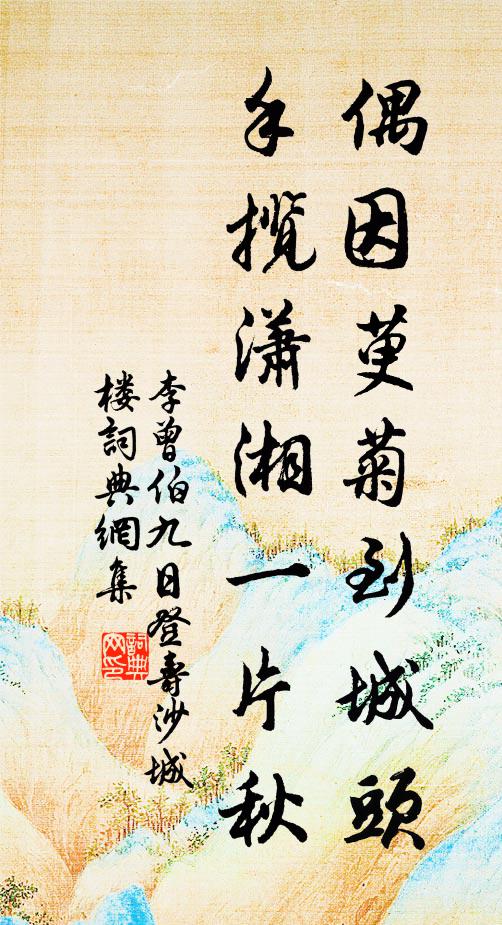 偶因萸菊到城頭
手攬瀟湘一片秋
李曾伯九日登壽沙城
楼詞典網集
詞典网印